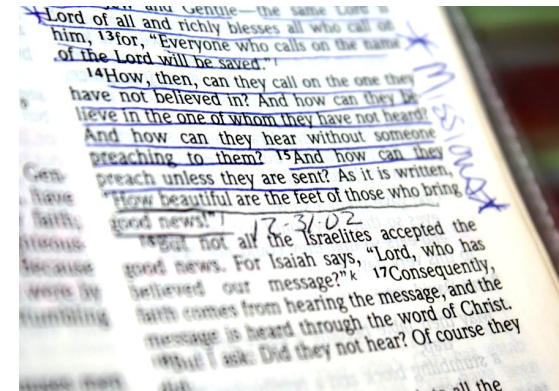 and Gentile—the same Lord is
Lord of all and richly blesses all who call on
him, 13for, "Everyone who calls on the name
of the Lord will be saved."i
14How, then, can they call on the one they
have not believed in? And how can they be-
lieve in the one of whom they have not heard?
And how can they hear without someone
preaching to them? 15And how can they
preach unless they are sent? As it is written,
"How beautiful are the feet of those who bring
good news!"j
12-31-02
16But not all the Israelites accepted the
good news. For Isaiah says, "Lord, who has
believed our message?"k 17Consequently,
faith comes from hearing the message, and the
message is heard through the word of Christ.
18But I ask: Did they not hear? Of course they
did:
all the
Missions
Gen-
have
faith,
because